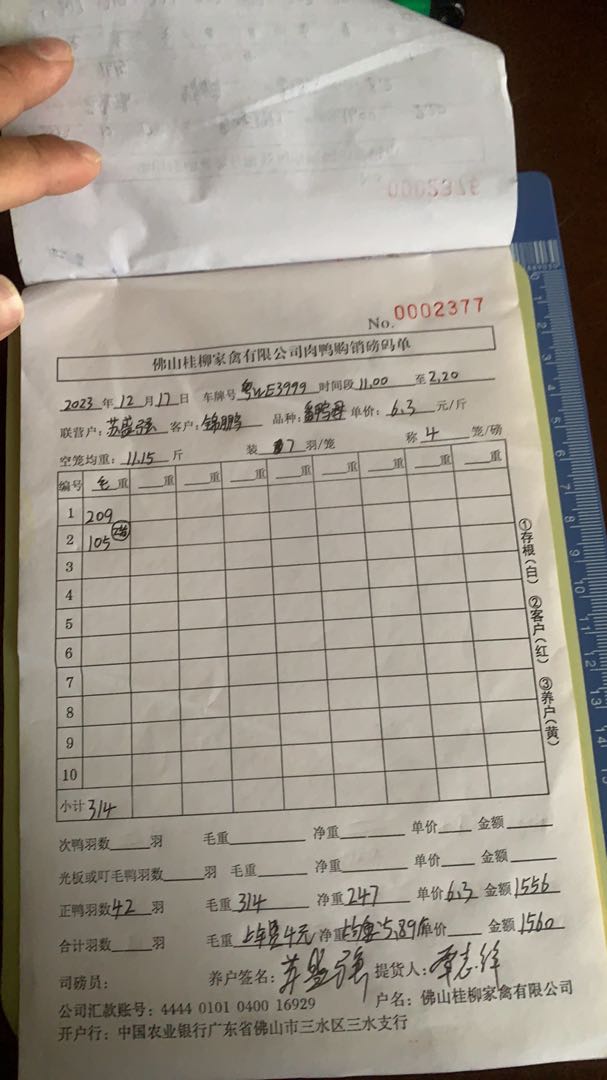 No. 0002377
佛山桂柳家禽有限公司肉鸭购销磅码单
2023年12月17日 车牌号粤WE3999 时间段11.00至2.20
联营户:苏盛强 客户:锦鹏 品种: 单价:6.3元/斤
空笼均重:11.15斤 装7羽/笼 称4笼/磅
编号 毛重 重 重 重 重 重 重 重
1 209
2 105
3
4
5
6
7
8
9
10
小计 314
①存根(白) ②客户(红) ③养户(黄)
次鸭羽数 羽 毛重 净重 单价 金额
光板或叮毛鸭羽数 羽 毛重 净重 单价 金额
正鸭羽数42羽 毛重314 净重247 单价6.3 金额1556
合计羽数 羽 毛重 上车费4元 净重 均重5.89斤 单价 金额1560
司磅员: 养户签名:苏盛强 提货人:
公司汇款账号:4444 0101 0400 16929 户名:佛山桂柳家禽有限公司
开户行:中国农业银行广东省佛山市三水区三水支行